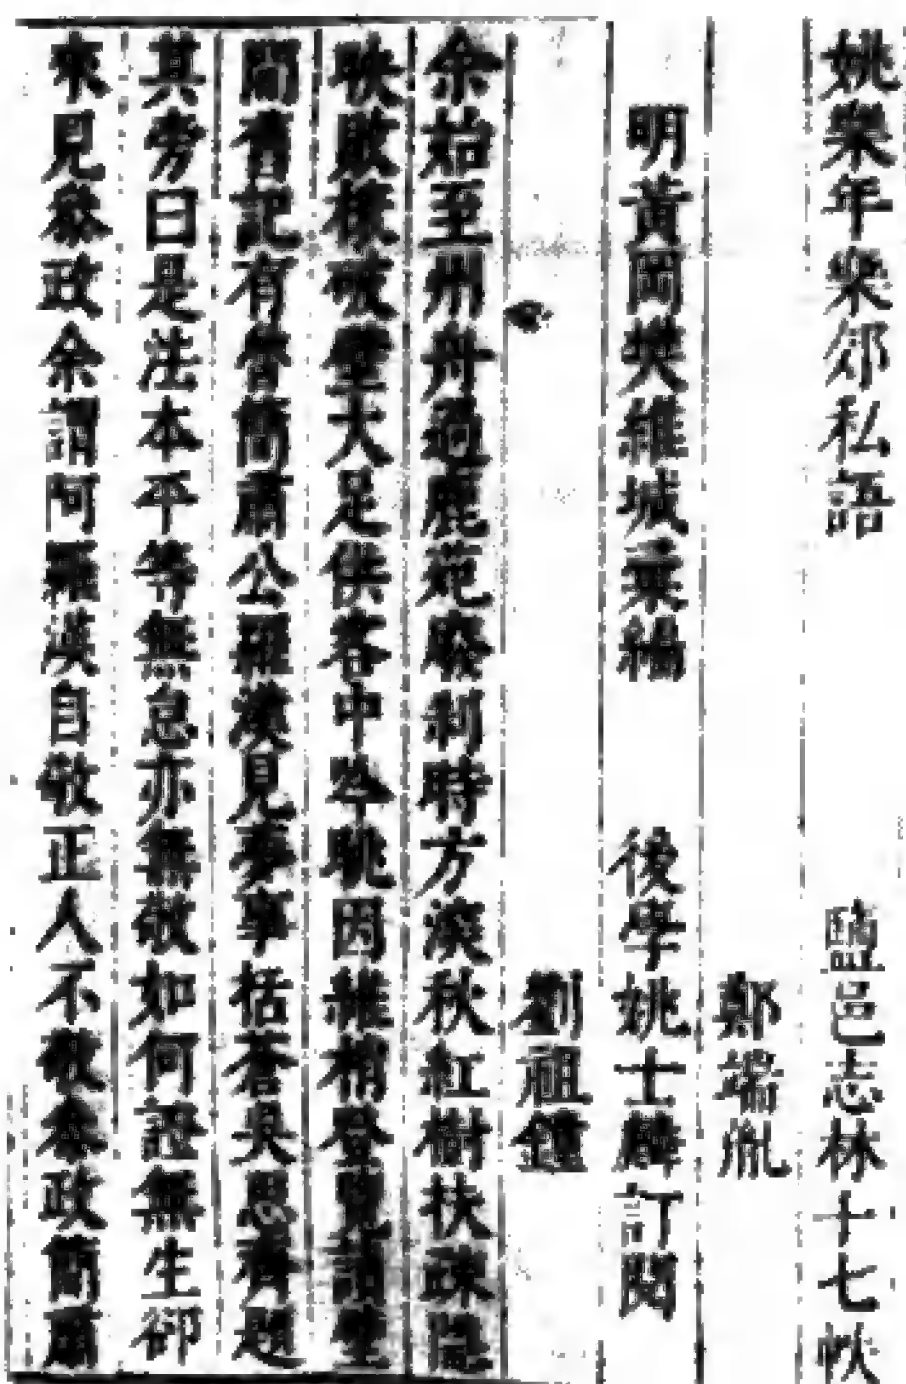 姚樂年樂郊私語　鹽邑志林十七帙
鄭端胤
明黃岡樊維城彙編　後學姚士麟訂閱
劉祖鐘
余始至州舟過鹿苑廢刹時方深秋紅樹扶疎隱
映敗椽破壁大足供客中吟眺因維梢登覽讀壁
間舊記有魯簡肅公羅漢見夢事括蒼吳思齊題
其旁曰是法本平等無怠亦無敬如何證無生卻
來見叅政余謂阿羅漢自敬正人不敬叅政簡肅